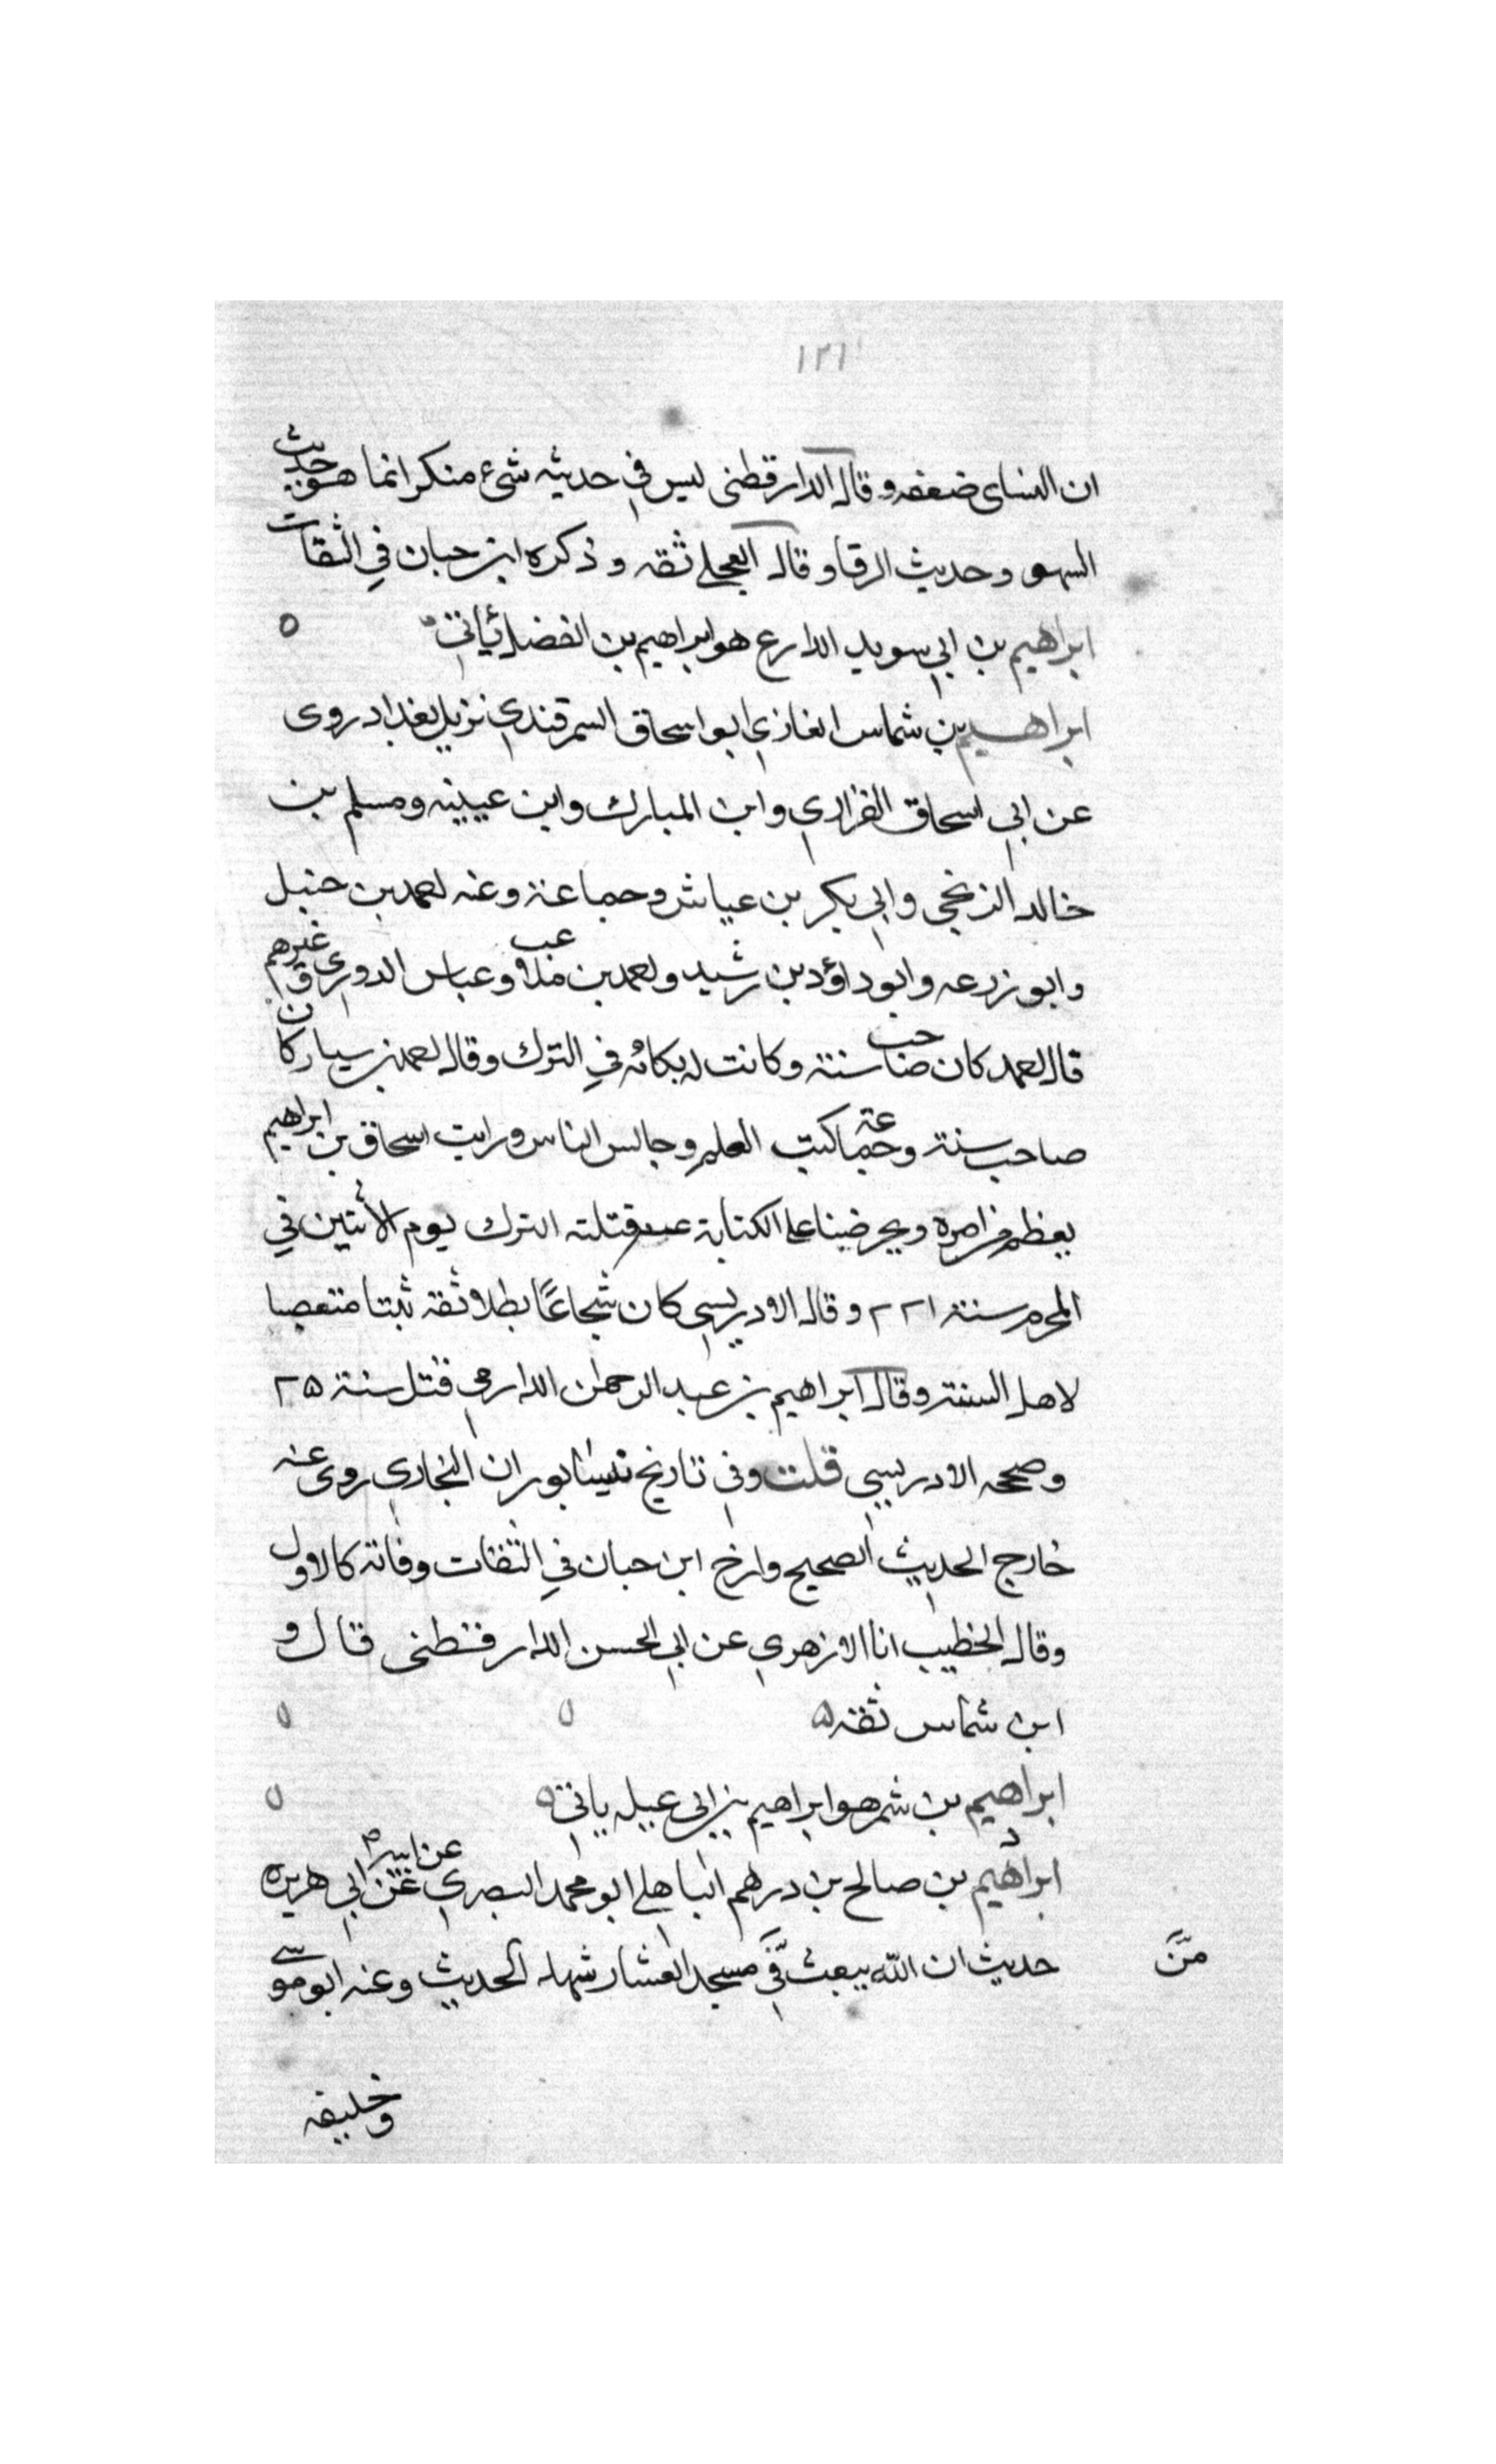 ١٢١
ان النساى ضعفه وقال الدارقطنى ليس في حديثه شئ منكر انما هو حديث
السهو وحديث الرقا وقال العجلے ثقه وذكره ابن حبان في الثقات
ابراهيم بن ابي سويد الدارع هو ابراهيم بن الفضل ياتي ٥
ابراهيم بن شماس الغازي ابو اسحاق السمرقندي نزيل بغداد روى
عن ابي اسحاق الفزاري وابن المبارك وابن عيينه ومسلم بن
خالد الزنجي وابي بكر بن عياش وجماعة وعنه احمد بن حنبل
وابو زرعه وابو داؤد بن رشيد واحمد بن ملاعب وعباس الدوري وغيرهم
قال احمد كان صاحب سنة وكانت له نكائه في الترك وقال احمد بن سيار كان
صاحب سنة وجماعة كتب العلم وجالس الناس ورايت اسحاق بن ابراهيم
يعظم من امره ويحرضنا على الكتابة عنه قتلته الترك يوم الاثنين في
المحرم سنة ٢٢١ وقال الادريسي كان شجاعًا بطلا ثقه ثبتا متعصبا
لاهل السنة وقال ابراهيم بن عبد الرحمن الدارمي قتل سنة ٢٥
وصححه الادريسي قلت وفي تاريخ نيسابور ان البخاري روى عنه
خارج الحديث الصحيح وارخ ابن حبان في الثقات وفاته كالاول
وقال الخطيب انا الازهري عن ابي الحسن الدارقطنى قال و
ابن شماس ثقه ٥
ابراهيم بن شمر هو ابراهيم بن ابى عبله ياتي ٥
د
ابراهيم بن صالح بن درهم الباهلے ابو محمد البصري عن ابيه عن ابي هريره
حديث ان الله يبعث في مسجد العشار شهدا الحديث وعنه ابو موسے
مّنَ
وخليفه